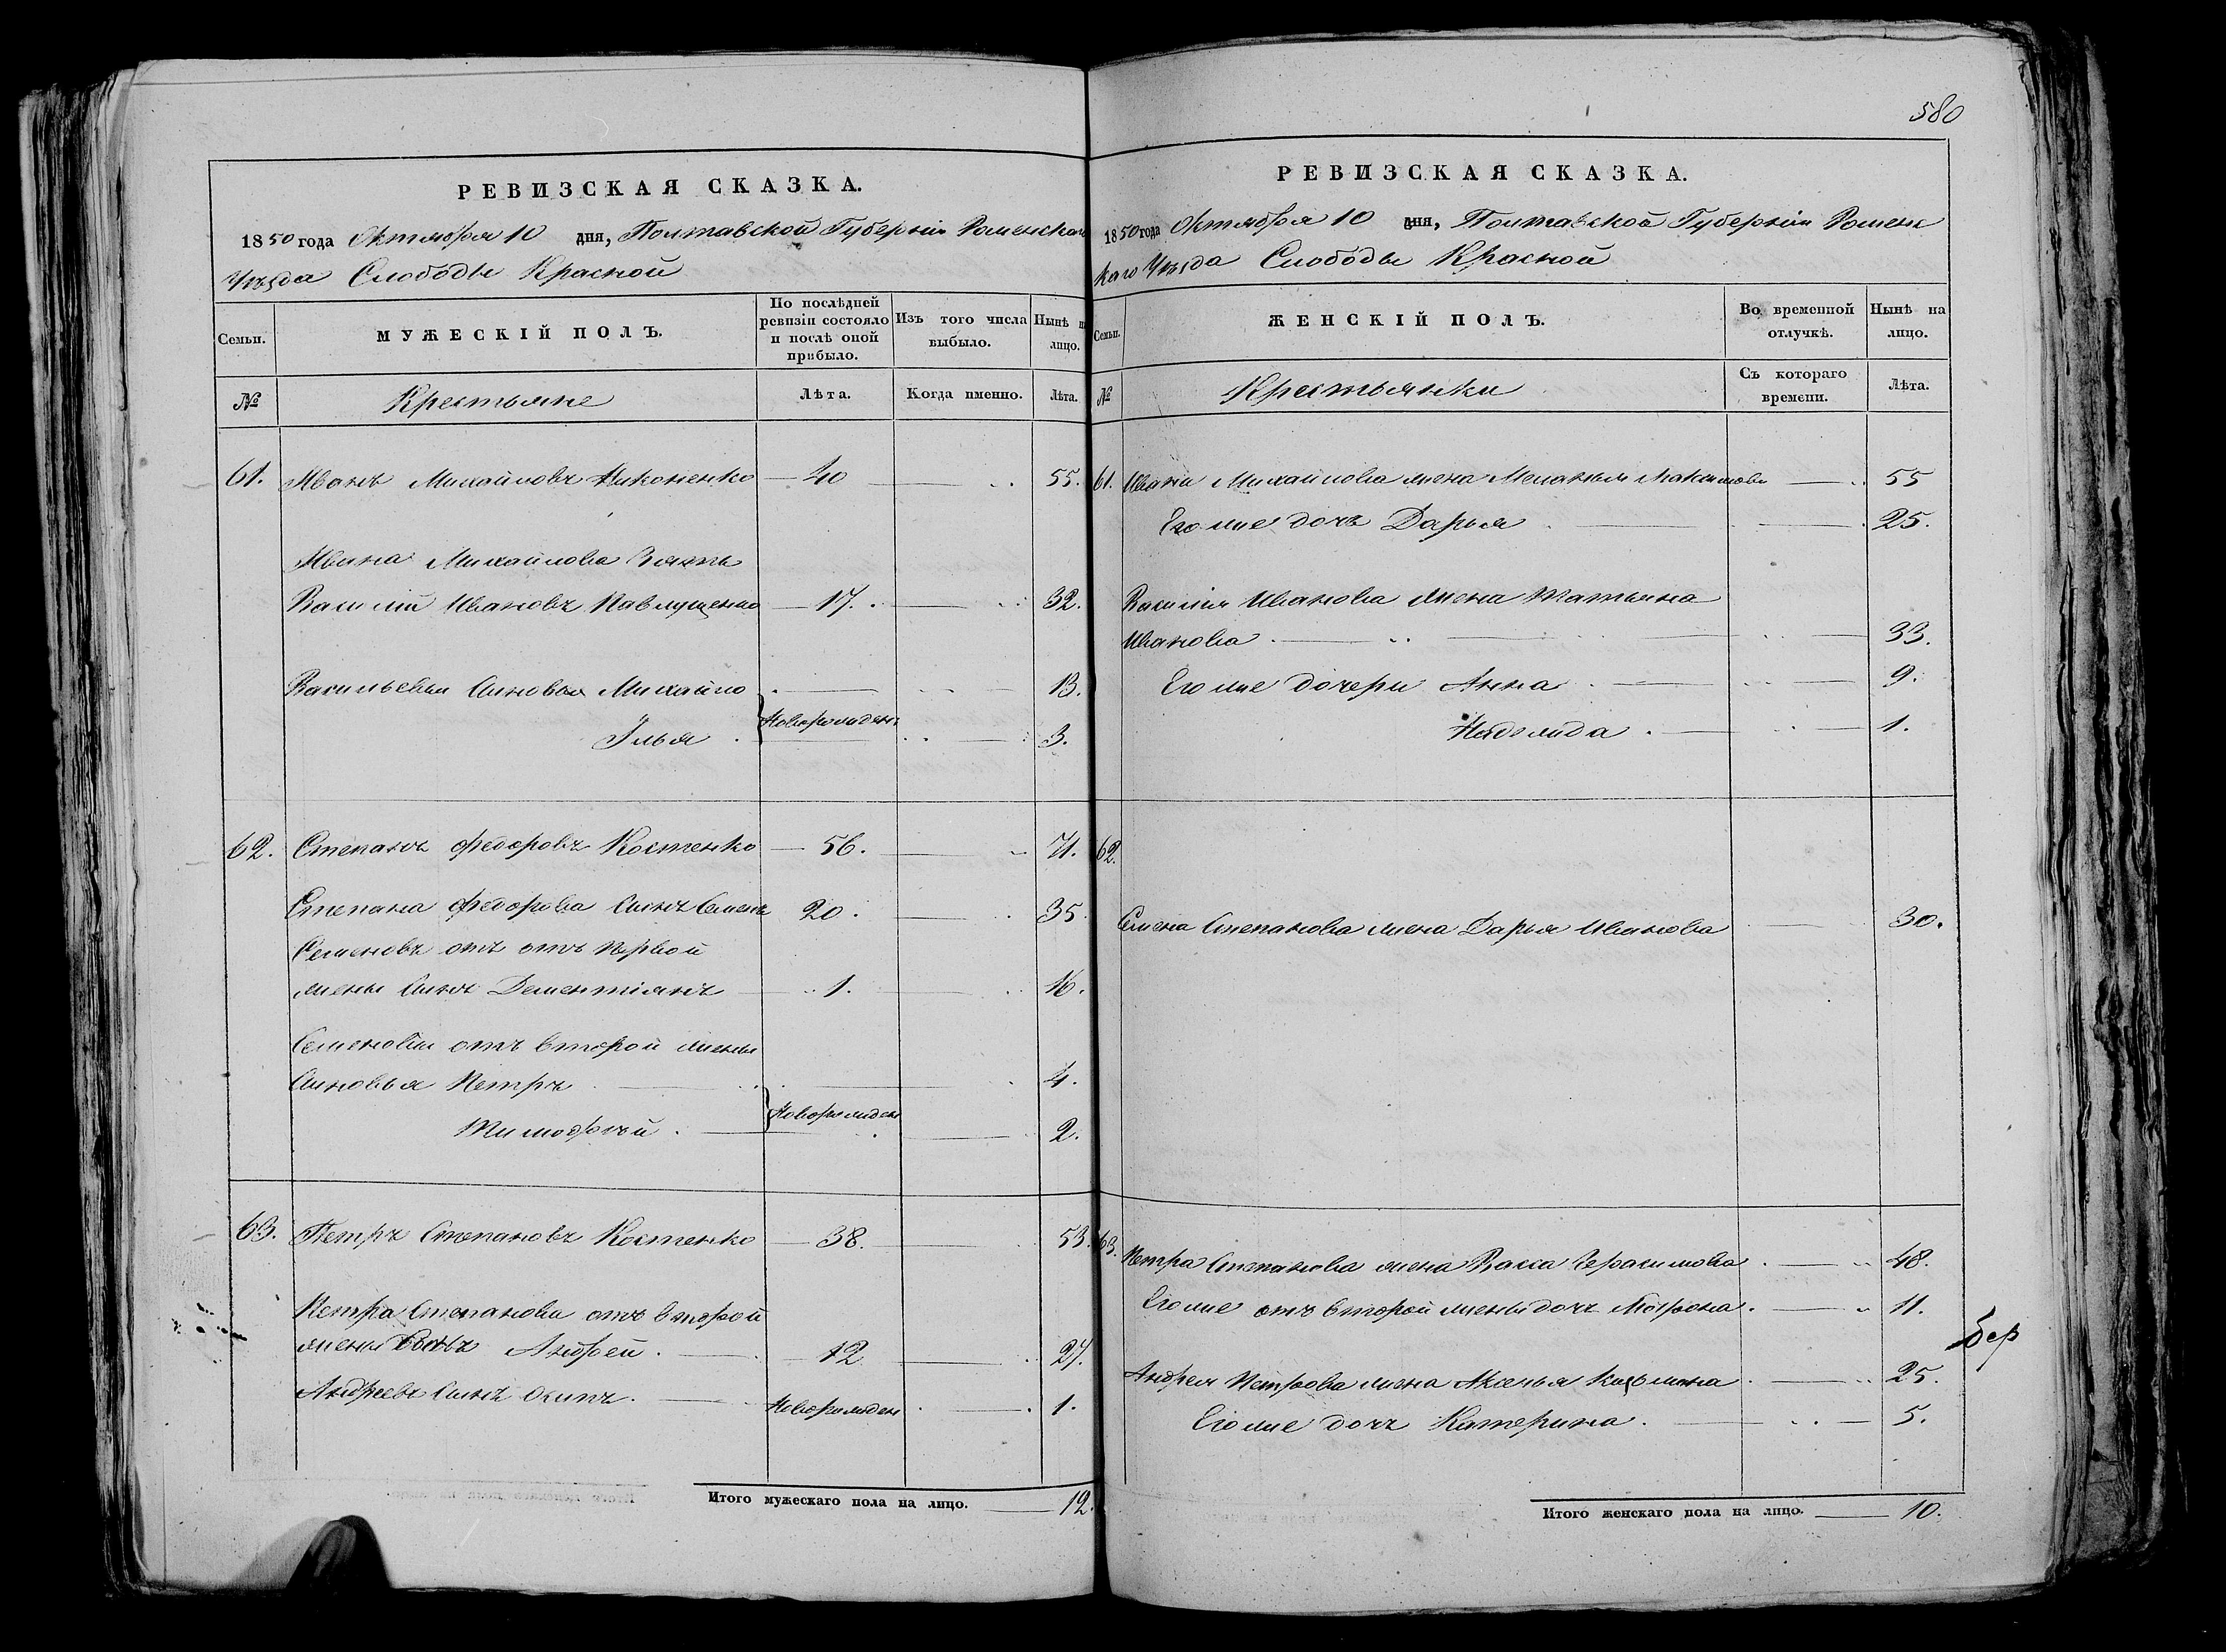 580
РЕВИЗСКАЯ СКАЗКА.
1850 года Октября 10 дня, Полтавской Губерніи Роменскаго
Уѣзда Слободы Красной
Семьи.
МУЖЕСКІЙ ПОЛЪ.
По послѣдней ревизіи состояло и послѣ оной прибыло.
Изъ того числа выбыло.
Нынѣ н лицо.
№
Крестьяне
Лѣта.
Когда именно.
Лѣта.
61. Иванъ Михайловъ Никоненко — 40 — 55.
Ивана Михайлова Зять
Василій Ивановъ Павлущенко — 17. — 32.
Васильевы Сыновья Михайло — 13.
Новорожден
Илья . — 3.
62. Степанъ Федоровъ Костенко — 56. — 71.
Степана Федорова Сынъ Семенъ 20. — 35
Семеновъ отъ отъ первой
жены Сынъ Дементіянъ — 1. — 16.
Семеновы отъ второй жены
Сыновья Петръ . — 4.
Новорожден
Тимофѣй . — 2.
63. Петръ Степановъ Костенко — 38. — 53.
Петра Степанова отъ второй
жены Сынъ Андрей . — 12 — 27.
Андреевъ Сынъ Осипъ . — Новорожден — 1.
Итого мужескаго пола на лицо. — 12.
РЕВИЗСКАЯ СКАЗКА.
1850 года Октября 10 дня, Полтавской Губерніи Роменс
каго Уѣзда Слободы Красной
Семьи.
ЖЕНСКІЙ ПОЛЪ.
Во временной отлучкѣ.
Нынѣ на лицо.
№
Крестьянки
Съ котораго времени.
Лѣта.
61. Ивана Михайлова жена Меланья Максимова — 55
Его же дочь Дарья . — 25.
Василія Иванова жена Татьяна
Иванова . — 33.
Его же дочери Анна . — 9.
Надежда . — 1.
62.
Семена Степанова жена Дарья Иванова — 30.
63. Петра Степанова жена Васса Герасимова . — 48.
Его же отъ второй жены дочь . — 11.
бер
Андрея Петрова жена Аксенья Козьмина . — 25.
Его же дочь Катерина . — 5.
Итого женскаго пола на лицо. — 10.